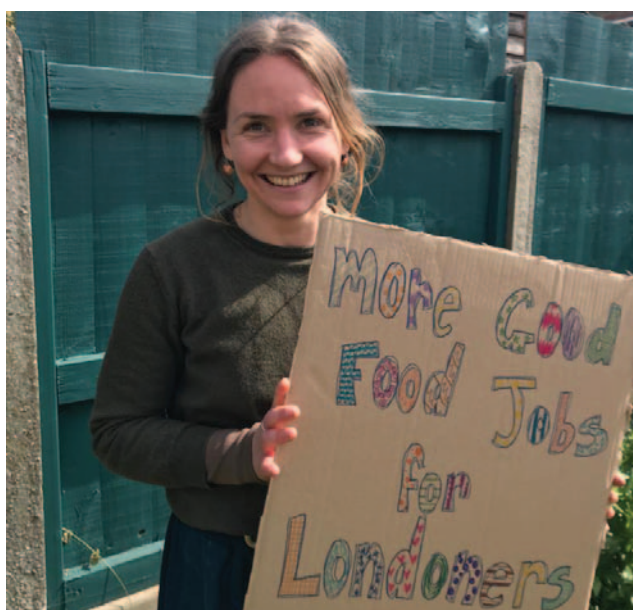 More Good
Food Jobs
for
Londoners